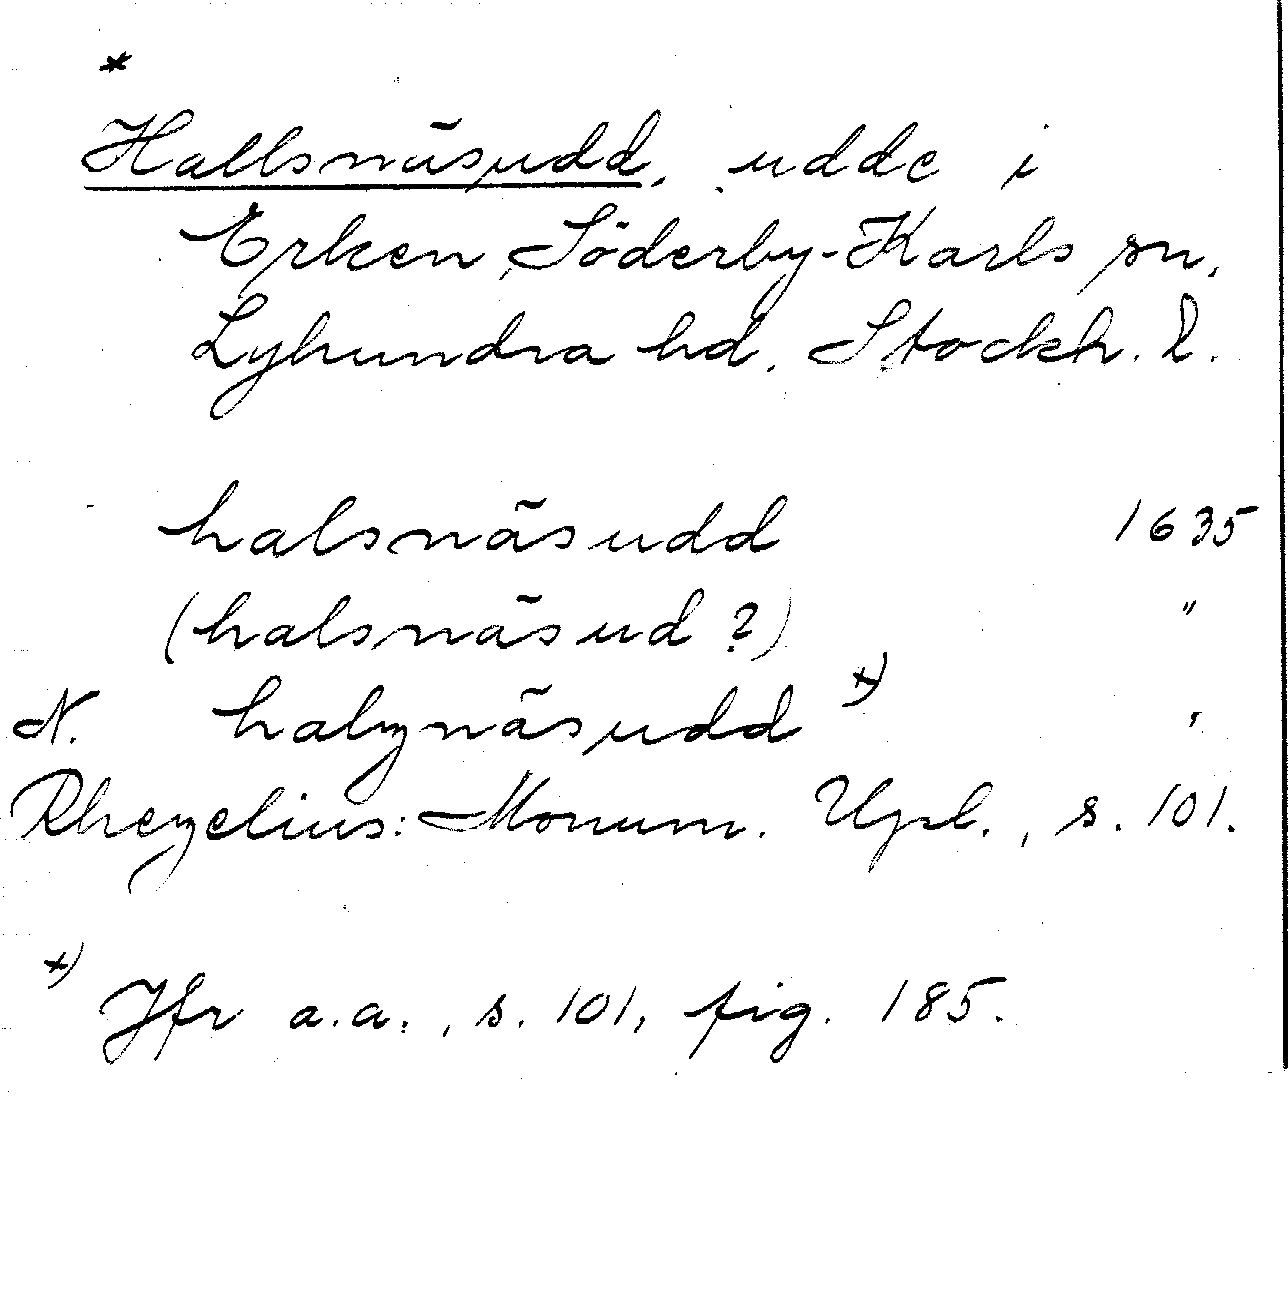 *
Hallsnäsudd, udde i
Erken, Söderby-Karls sn,
Lyhundra hd, Stockh. l.
halsnäsudd 1635
(halsnäsud ?) "
N. halznäsudd x) "
Rhezelius: Monum. Upl., s. 101.
x) Jfr a.a., s. 101, fig. 185.